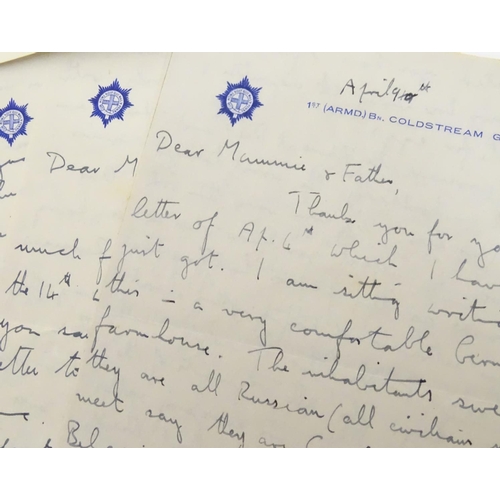 April 9th
1ST (ARMD.) BN. COLDSTREAM G
Dear Mummie & Father,
Thank you for yo
letter of Ap. 4th which I have
just got. I am sitting writin
this in a very comfortable Germ
farmhouse. The inhabitants swe
they are all Russian (all civilians
meet say they are
Dear M
much f
the 14th &
you sa
etter to
Bel